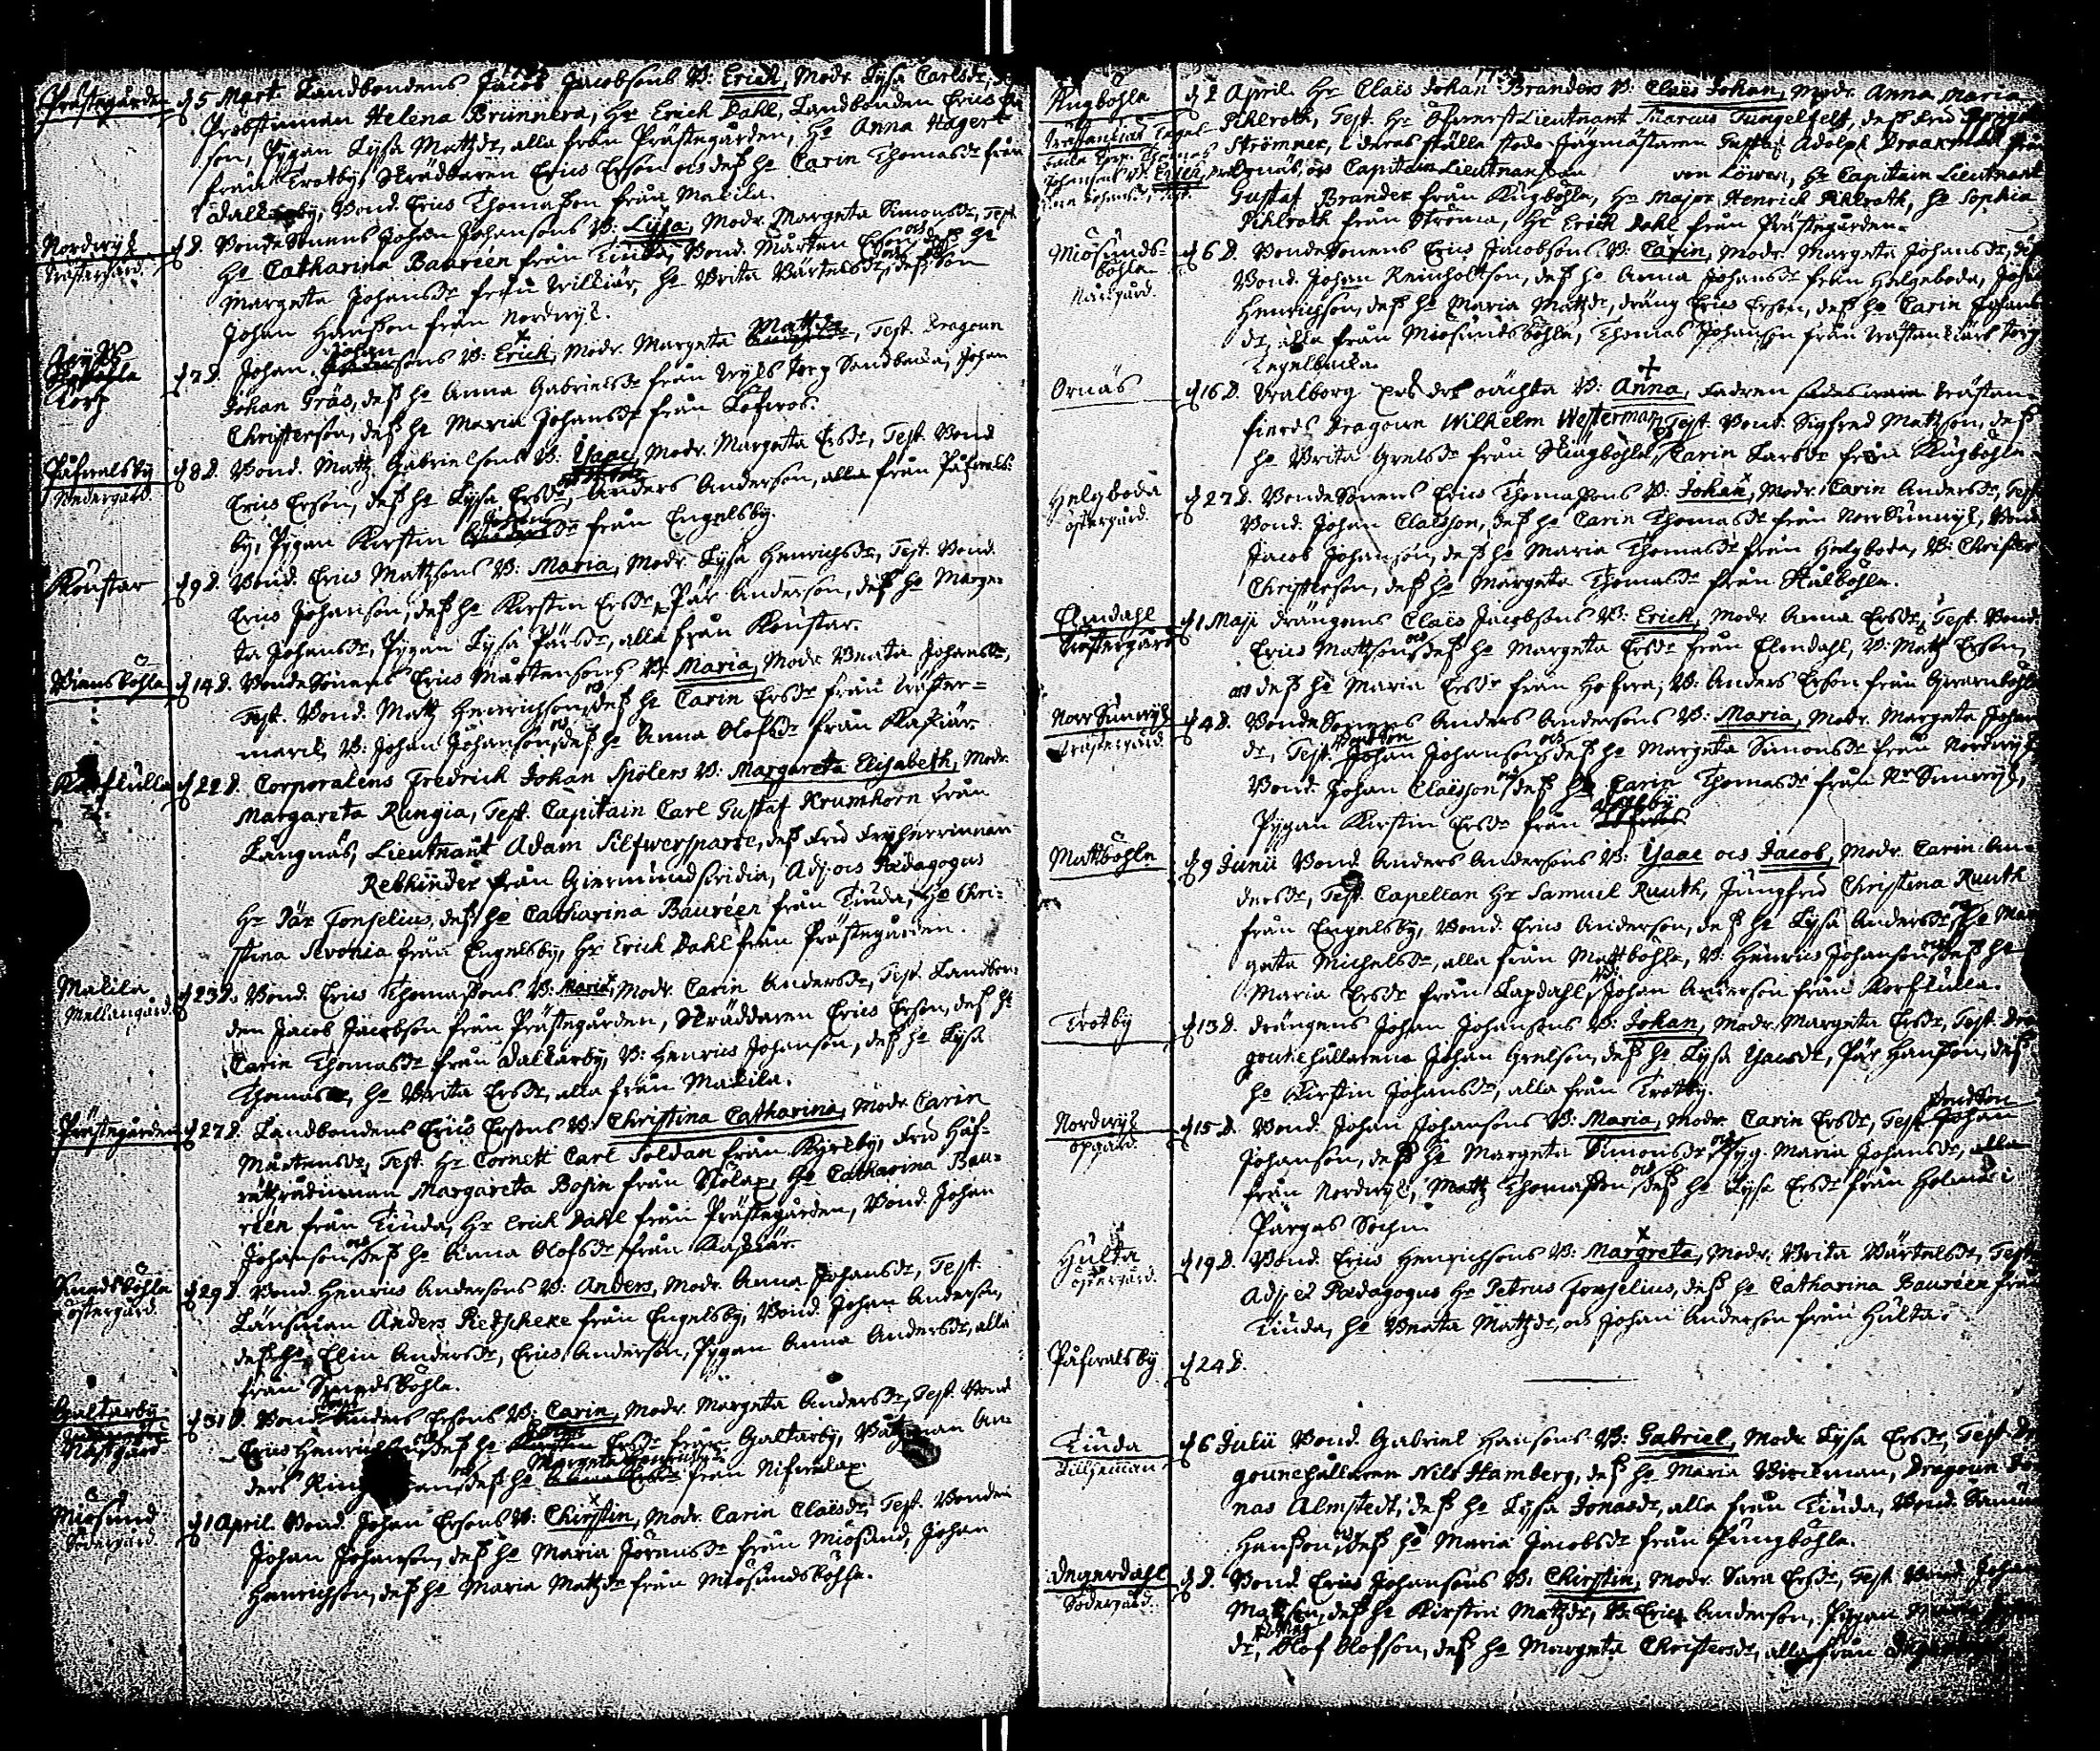 Prästegården d 5 Mart. Landbondens Jacob Jacobsons B: Erich, Modr. Lysa Carlsdr,
Probstinnan Helena Brunnera, Hr Erich Dahl, Landbonden Erics Er
son, Pygan Lysa Mattsdr, alla från Prästegården, Ho Anna Hagert
från Trotby, Skräddaren Erics Erson ocs deß ho Carin Thomasdr från
Dalkarby, Bond. Erics Thomaßon från Makila.
Nordwyk d D. BondeSonens Johan Johansons B: Lysa, Modr. Margeta Simonsdr, Test.
Ho Catharina Bauréen från Tiuda, Bond. Mårten Erson ocs deß ho
Margeta Johansdr från Williär, Ho Brita Bärtelsdr, deß Son
Johan Hanßon från Nordwyk.
Torp d 7 D. Johan Johansons B: Erich, Modr. Margeta Mattsdr, Test. Dragoun
Johan Gräs, deß ho Anna Gabrielsdr från Wyks torp Sandbacka, Johan
Christerson, deß ho Maria Johansdr från Löfwos.
Påfwalsby d 8 D. Bond. Matts Gabrielsons B: Ysaac, Modr. Margeta Ersdr, Test. Bond
Erics Erson, deß ho Lysa Ersdr, Anders Anderson, alla från Påfwals-
by, Pygan Kirstin Johansdr från Engelsby.
Koustar d 9 D. Bond. Erics Mattsons B: Maria, Modr. Lysa Henrichsdr, Test. Bond.
Erics Johanson, deß ho Kirstin Ersdr, Pär Anderson, deß ho Marge-
ta Johansdr, Pygan Lysa Pärsdr, alla från Koustar.
d 14 D. BondeSonens Erics Mårtensons B: Maria, Modr. Beata Johansdr,
Test. Bond. Matts Henrichson, ocs deß ho Carin Ersdr från Wäster-
mark, B: Johan Johanson, ocs deß ho Anna Olofsdr från Kaskiär.
Korfkulla d 22 D. Corporalens Fredrich Johan Spölers B: Margareta Elisabeth, Modr.
Margareta Rungia, Test. Capitain Carl Gustaf Krumhorn från
Långnäs, Lieutnant Adam Silfwersparre, deß Fru Fryherrinnan
Rebhinder från Giermundswidia, Adj. ocs Pædagogus
Hr Pär Fonselius, deß ho Catharina Bauréen från Tiuda, Ho Chri-
stina Sevonia från Engelsby, Hr Erich Dahl från Prästegården.
Makila Mellangård d 23 D. Bond. Erics Thomaßons B: Maria, Modr. Carin Andersdr, Test. Landbon-
den Jacob Jacobson från Prästegården, Skräddaren Erics Erson, deß ho
Carin Thomasdr från Dalkarby, B: Henrics Johanson, deß ho Lysa
Thomasdr, ho Brita Ersdr, alla från Makila.
Prästegården d 27 D. Landbondens Erics Ersons B: Christina Catharina, Modr. Carin
Mårtensdr, Test. Hr Cornett Carl Soldan från Kyrlby, Fru Håf-
rättsrådinnan Margareta Bosin från Stölax, Ho Catharina Bau-
réen från Tiuda, Hr Erich Dahl från Prästegården, Bond. Johan
Johanson ocs deß ho Anna Olofsdr från Kaskiär.
Smedsböhle östergård d 29 D. Bond. Henrics Andersons B: Anders, Modr. Anna Johansdr, Test.
Länsman Anders Retscheke från Engelsby, Bond. Johan Anderson,
deß ho Elin Andersdr, Erics Anderson, Pygan Anna Andersdr, alla
från Smedsböhle.
Galtarby d 31 D. Bond. Anders Ersons B: Carin, Modr. Margeta Andersdr, Test. Bond
Erics Henrichson ocs deß ho Ersdr från Galtarby, Båtzman An-
ders Ring ocs deß ho Margeta Henrichsdr från Nifwelax.
Miösund Södergård d 1 April. Bond. Johan Ersons B: Chirstin, Modr. Carin Claësdr, Test. Bonden
Johan Johanson, deß ho Maria Jörensdr från Miösund, Johan
Henrichson, deß ho Maria Mattsdr från Miösundsböhle.
Kugböhle d 2 April. Hr Claës Johan Branders B: Claës Johan, Modr. Anna Maria
Pihlroth, Test. Hr Öfwerst Lieutnant Marcus Tungelfelt, deß Fru
Strömner, i deras ställe stodo Jägmästaren Gustaf Adolph Draakman från
ocs Capitain Lieutnanskan von Löwen, Hr Capitain Lieutnant
Gustaf Brander från Kugböhle, Hr Major Henrich Pihlroth, Ho Sophia
Pihlroth från Ströma, Hr Erich Dahl från Prästegården.
Miösundsböhle Näsgård d 6 D. BondeSonens Erics Jacobsons B: Carin, Modr. Margeta Johansdr,
Bond. Johan Reinholtson, deß ho Anna Johansdr från Helgeboda, Johan
Henrichson, deß ho Maria Mattsdr, dräng Erics Erson, deß ho Carin Johans
dr, alla från Miösundsböhle, Thomas Johanson från Wästankiärs torp
Tegelbacka.
Ornäs d 16 D. Walborg oächta B: Anna, Fadren Wästan-
fierds Dragoun Wilhelm Westerman, Test. Bond. Sigfred Mattson, deß
ho Brita Grelsdr från Kugböhle, Carin Larsdr från Kugböhle.
Helgboda östergård d 27 D. BondeSonens Erics Thomaßons B: Johan, Modr. Carin Andersdr, Test.
Bond. Johan Claësson, deß ho Carin Thomasdr från NorrSunwyk, Bond
Jacob Johanson, deß ho Maria Thomasdr från Helgboda, B: Christer
Christerson, deß ho Margeta Thomasdr från Stålböhle.
Elmdahl Wästergård d 1 Maji drängens Claës Jacobsons B: Erich, Modr. Anna Ersdr, Test. Bond
Erics Mattson, ocs deß ho Margeta Ersdr från Elmdahl, B: Matts Erson,
ocs deß ho Maria Ersdr från Hofwra, B: Anders Erson från Qwarnböhle
NorrSunwyk Wästergård d 4 D. BondeSonens Anders Andersons B: Maria, Modr. Margeta Johans
dr, Test. BondSon Johan Johanson, ocs deß ho Margeta Simonsdr från Nordwyk,
Bond. Johan Claësson, ocs deß ho Carin Thomasdr från Nr Sunwyk,
Pygan Kirstin Ersdr från
Mattböhle d 9 Junii Bond. Anders Andersons B: Ysaac ocs Jacob, Modr. Carin An-
dersdr, Test. Capellan Hr Samuel Ruuth, Jungfru Christina Ruuth
från Engelsby, Bond. Erics Anderson, deß ho Lysa Andersdr, ho Mar
gata Michelsdr, alla från Mattböhle, B: Henrics Johanson, ocs deß ho
Maria Ersdr från Lapdahl, Johan Anderson från Korfkulla.
Trotby d 13 D. drängens Johan Johansons B: Johan, Modr. Margeta Ersdr, Test. Dra
gounehållarena Johan Grelson, deß ho Lysa Ysacsdr, Pär Hanßon, deß
ho Kirstin Johansdr, alla från Trotby.
Nordwyk opgård d 15 D. Bond. Johan Johansons B: Maria, Modr. Carin Ersdr, Test. BondSon Johan
Johanson, deß ho Margeta Simonsdr, ocs Pyg. Maria Johansdr, alla
från Nordwyk, Matts Thomaßon ocs deß ho Lysa Ersdr från Holma i
Pargas Sochn.
Hulta östergård d 19 D. Bond. Erics Henrichsons B: Margreta, Modr. Brita Bärtelsdr, Test.
Adj. et Pædagogus Hr Petrus Fonselius, deß ho Catharina Bauréen från
Tiuda, ho Beata Mattsdr, ocs Johan Anderson från Hulta.
Påfwalsby d 24 D.
Tiuda Lilljeman d 6 Julii Bond. Gabriel Hansons B: Gabriel, Modr. Lysa Ersdr, Test. Dra
gounehållaren Nils Hamberg, deß ho Maria Wirckman, Dragoun Jo
nas Almstedt, deß ho Lysa Jonasdr, alla från Tiuda, Bond. Samuel
Hanßon, ocs deß ho Maria Jacobsdr från Pungböhle.
Degerdahl Södergård d D. Bond. Erics Johansons B: Chirstin, Modr. Sara Ersdr, Test. Bond Johan
Mattson, deß ho Kirstin Mattsdr, B: Erics Anderson, Pygan
dr, Olof Olofson, deß ho Margeta Christersdr, alla från